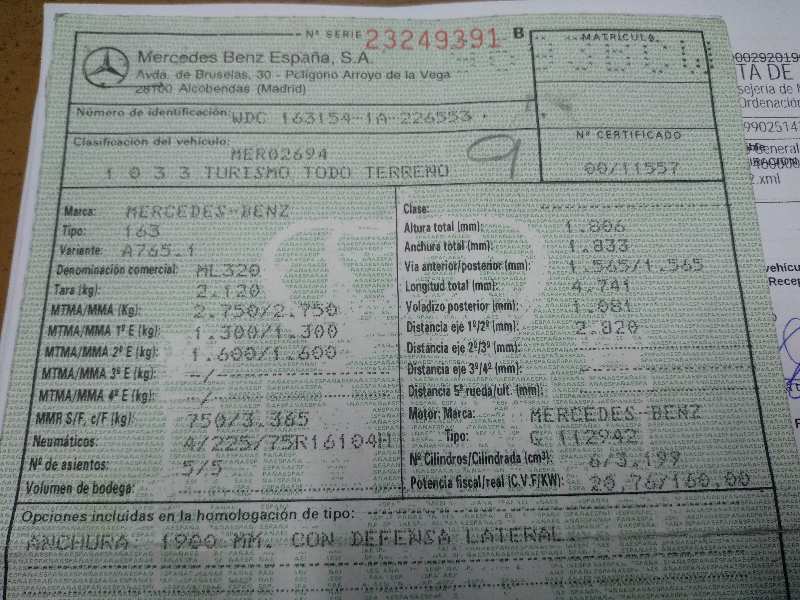 Nº SERIE 23249391 B
MATRICULA
Mercedes Benz España, S.A.
Avda. de Bruselas, 30 - Polígono Arroyo de la Vega
28100 Alcobendas (Madrid)
Número de identificación: WDC 163154-1A-226553
Clasificación del vehículo:
MER02694
1 0 3 3 TURISMO TODO TERRENO
9
Nº CERTIFICADO
00/11557
Marca: MERCEDES-BENZ
Tipo: 163
Variante: A765.1
Denominación comercial: ML320
Tara (kg): 2.120
MTMA/MMA (Kg): 2.750/2.750
MTMA/MMA 1º E (kg): 1.300/1.300
MTMA/MMA 2º E (kg): 1.600/1.600
MTMA/MMA 3º E (kg): -/-
MTMA/MMA 4º E (kg): -/-
MMR S/F, c/F (kg): 750/3.365
Neumáticos: A/225/75R16104H
Nº de asientos: 5/5
Volumen de bodega:
Clase:
Altura total (mm): 1.806
Anchura total (mm): 1.833
Vía anterior/posterior (mm): 1.565/1.565
Longitud total (mm): 4.741
Voladizo posterior (mm): 1.081
Distancia eje 1º/2º (mm): 2.820
Distancia eje 2º/3º (mm):
Distancia eje 3º/4º (mm):
Distancia 5ª rueda/ult. (mm):
Motor: Marca: MERCEDES-BENZ
Tipo: G 112942
Nº Cilindros/Cilindrada (cm³): 6/3.199
Potencia fiscal/real (C.V.F/KW): 20,76/160,00
Opciones incluidas en la homologación de tipo:
ANCHURA 1900 MM. CON DEFENSA LATERAL.
TA DE
sejería de
Ordenación
9902514
General
2.xml
vehícu
Recep